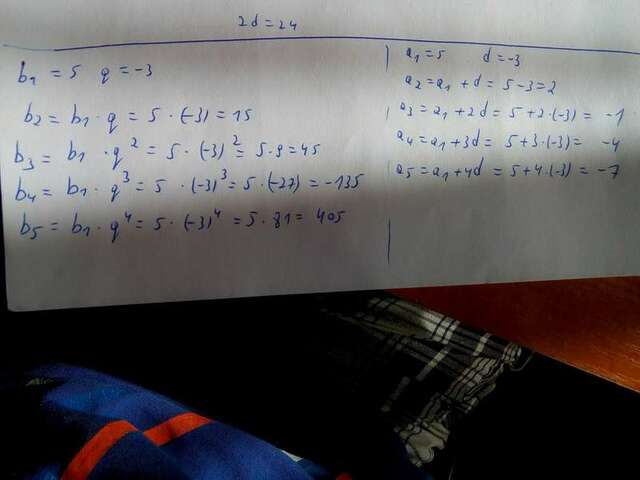 2d = 24
b1 = 5 q = -3
b2 = b1 · q = 5 · (-3) = 15
b3 = b1 · q² = 5 · (-3)² = 5 · 9 = 45
b4 = b1 · q³ = 5 · (-3)³ = 5 · (-27) = -135
b5 = b1 · q⁴ = 5 · (-3)⁴ = 5 · 81 = 405
a1 = 5 d = -3
a2 = a1 + d = 5 - 3 = 2
a3 = a1 + 2d = 5 + 2 · (-3) = -1
a4 = a1 + 3d = 5 + 3 · (-3) = -4
a5 = a1 + 4d = 5 + 4 · (-3) = -7